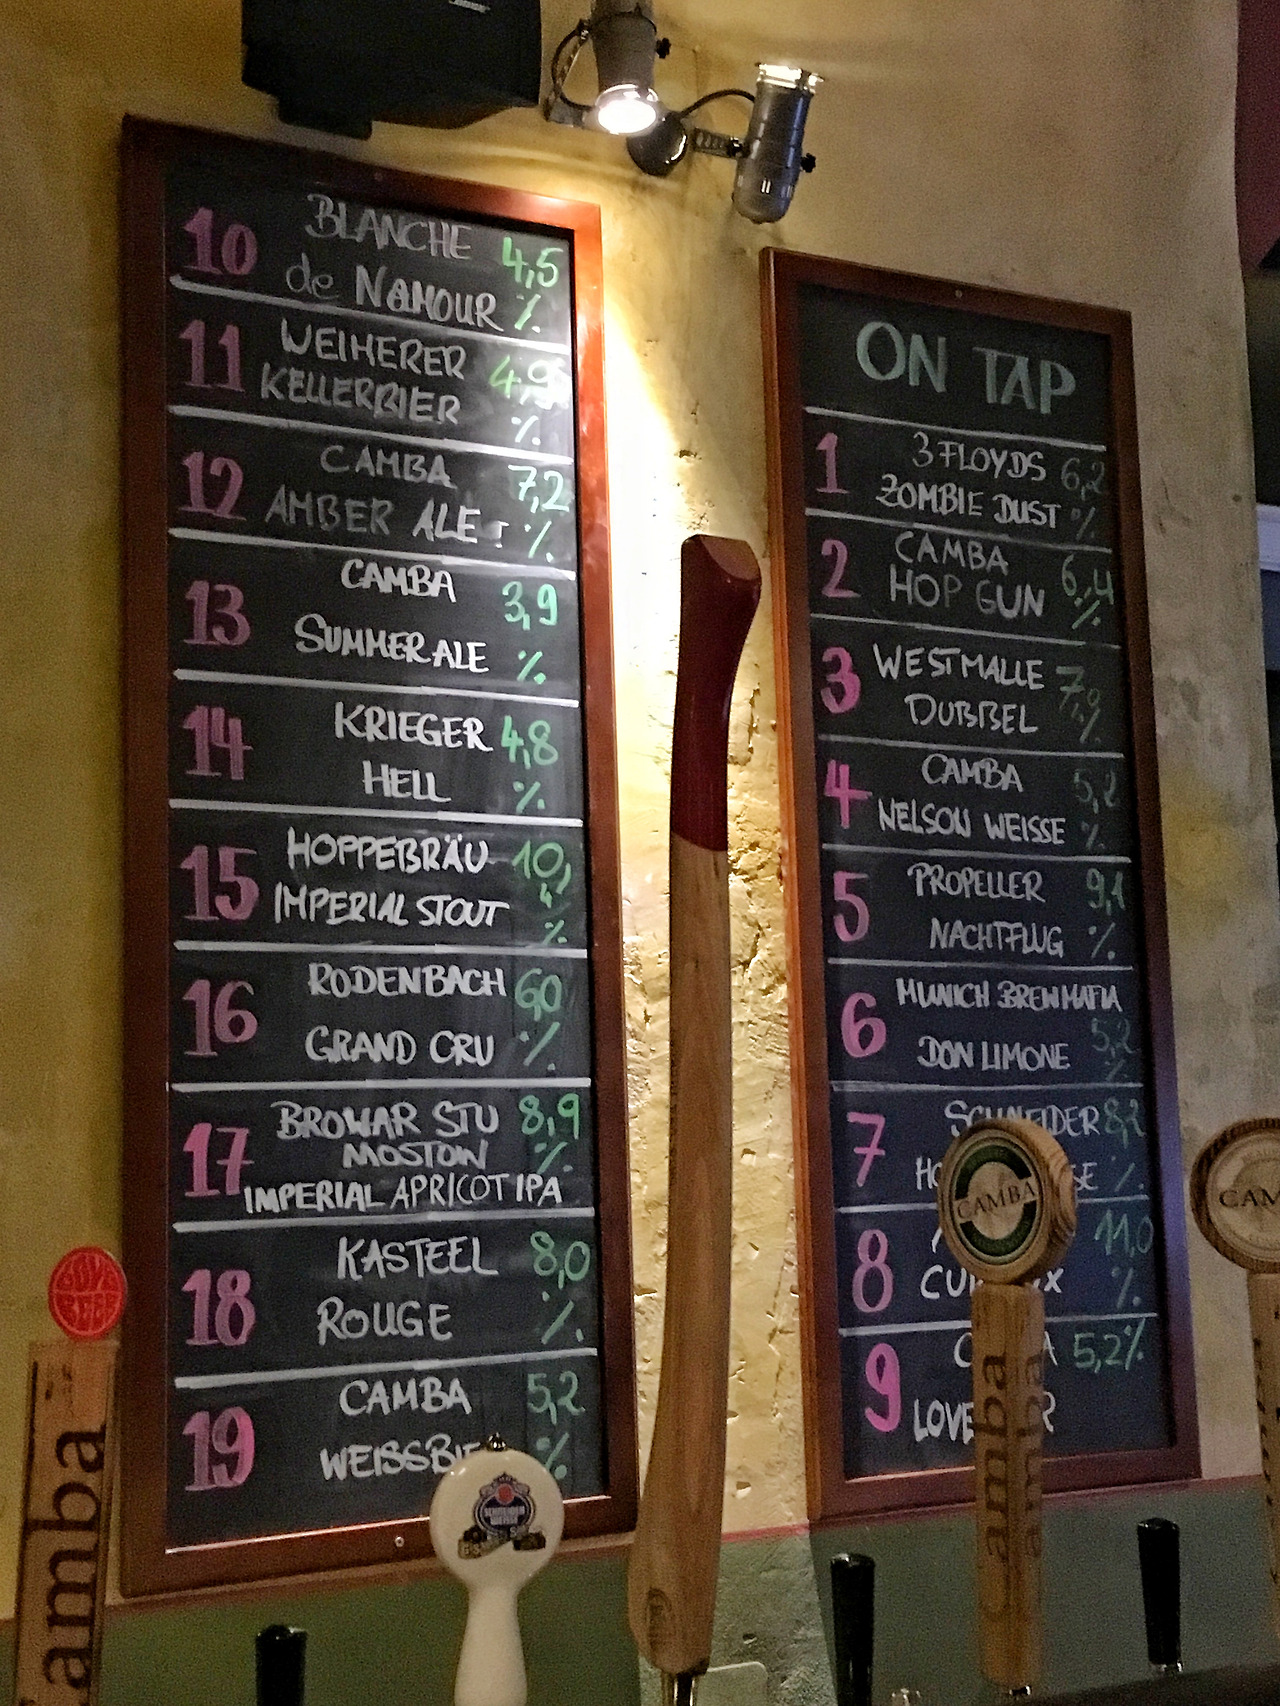 BOSE
10 BLANCHE 4,5
de NAMOUR %
11 WEIHERER 4,9
KELLERBIER %
12 CAMBA 7,2
AMBER ALE %
13 CAMBA 3,9
SUMMER ALE %
14 KRIEGER 4,8
HELL %
15 HOPPEBRÄU 10,4
IMPERIAL STOUT %
16 RODENBACH 6,0
GRAND CRU %
17 BROWAR STU 8,9
MOSTOW %
IMPERIAL APRICOT IPA
18 KASTEEL 8,0
ROUGE %
19 CAMBA 5,2
WEISSBIE %
ON TAP
1 3 FLOYDS 6,2
ZOMBIE DUST %
2 CAMBA 6,4
HOP GUN %
3 WESTMALLE 7,9
DUBBEL %
4 CAMBA 5,2
NELSON WEISSE %
5 PROPELLER 9,1
NACHTFLUG %
6 MUNICH BREWMAFIA
5,2
DON LIMONE %
7 SCHNEIDER 8,2
HO SE %
8 11,0
CU X %
9 C A 5,2%
LOVE R
CAMBA
CAM
LOVE
BEER
camba
SCHNEIDER
WEISSE
camba
amba